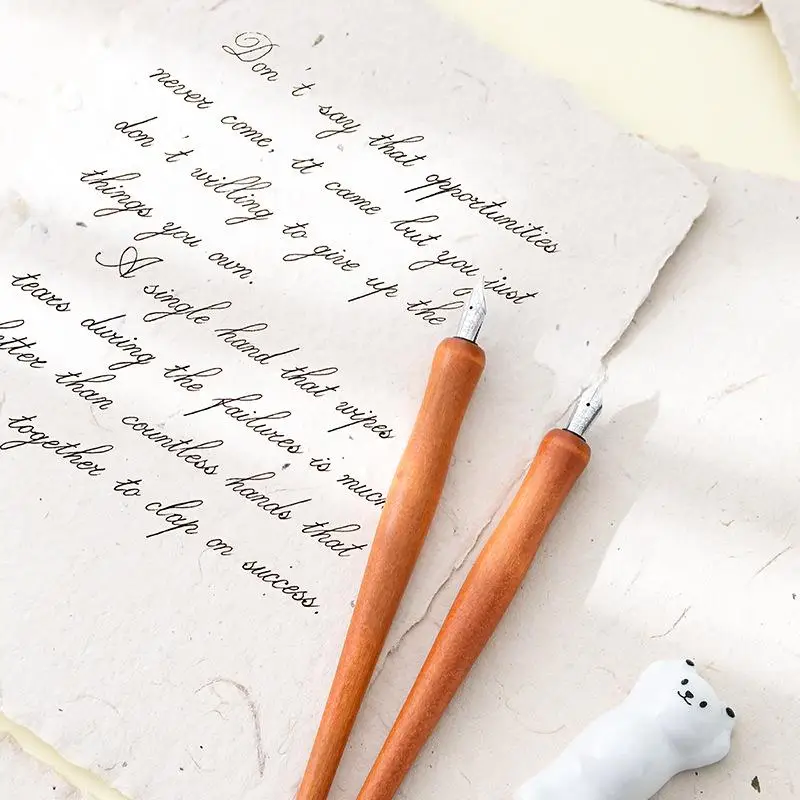 Don't say that opportunities
never come, it came but you just
don't willing to give up the
things you own.
A single hand that wipes
tears during the failures is much
better than countless hands that
together to clap on success.